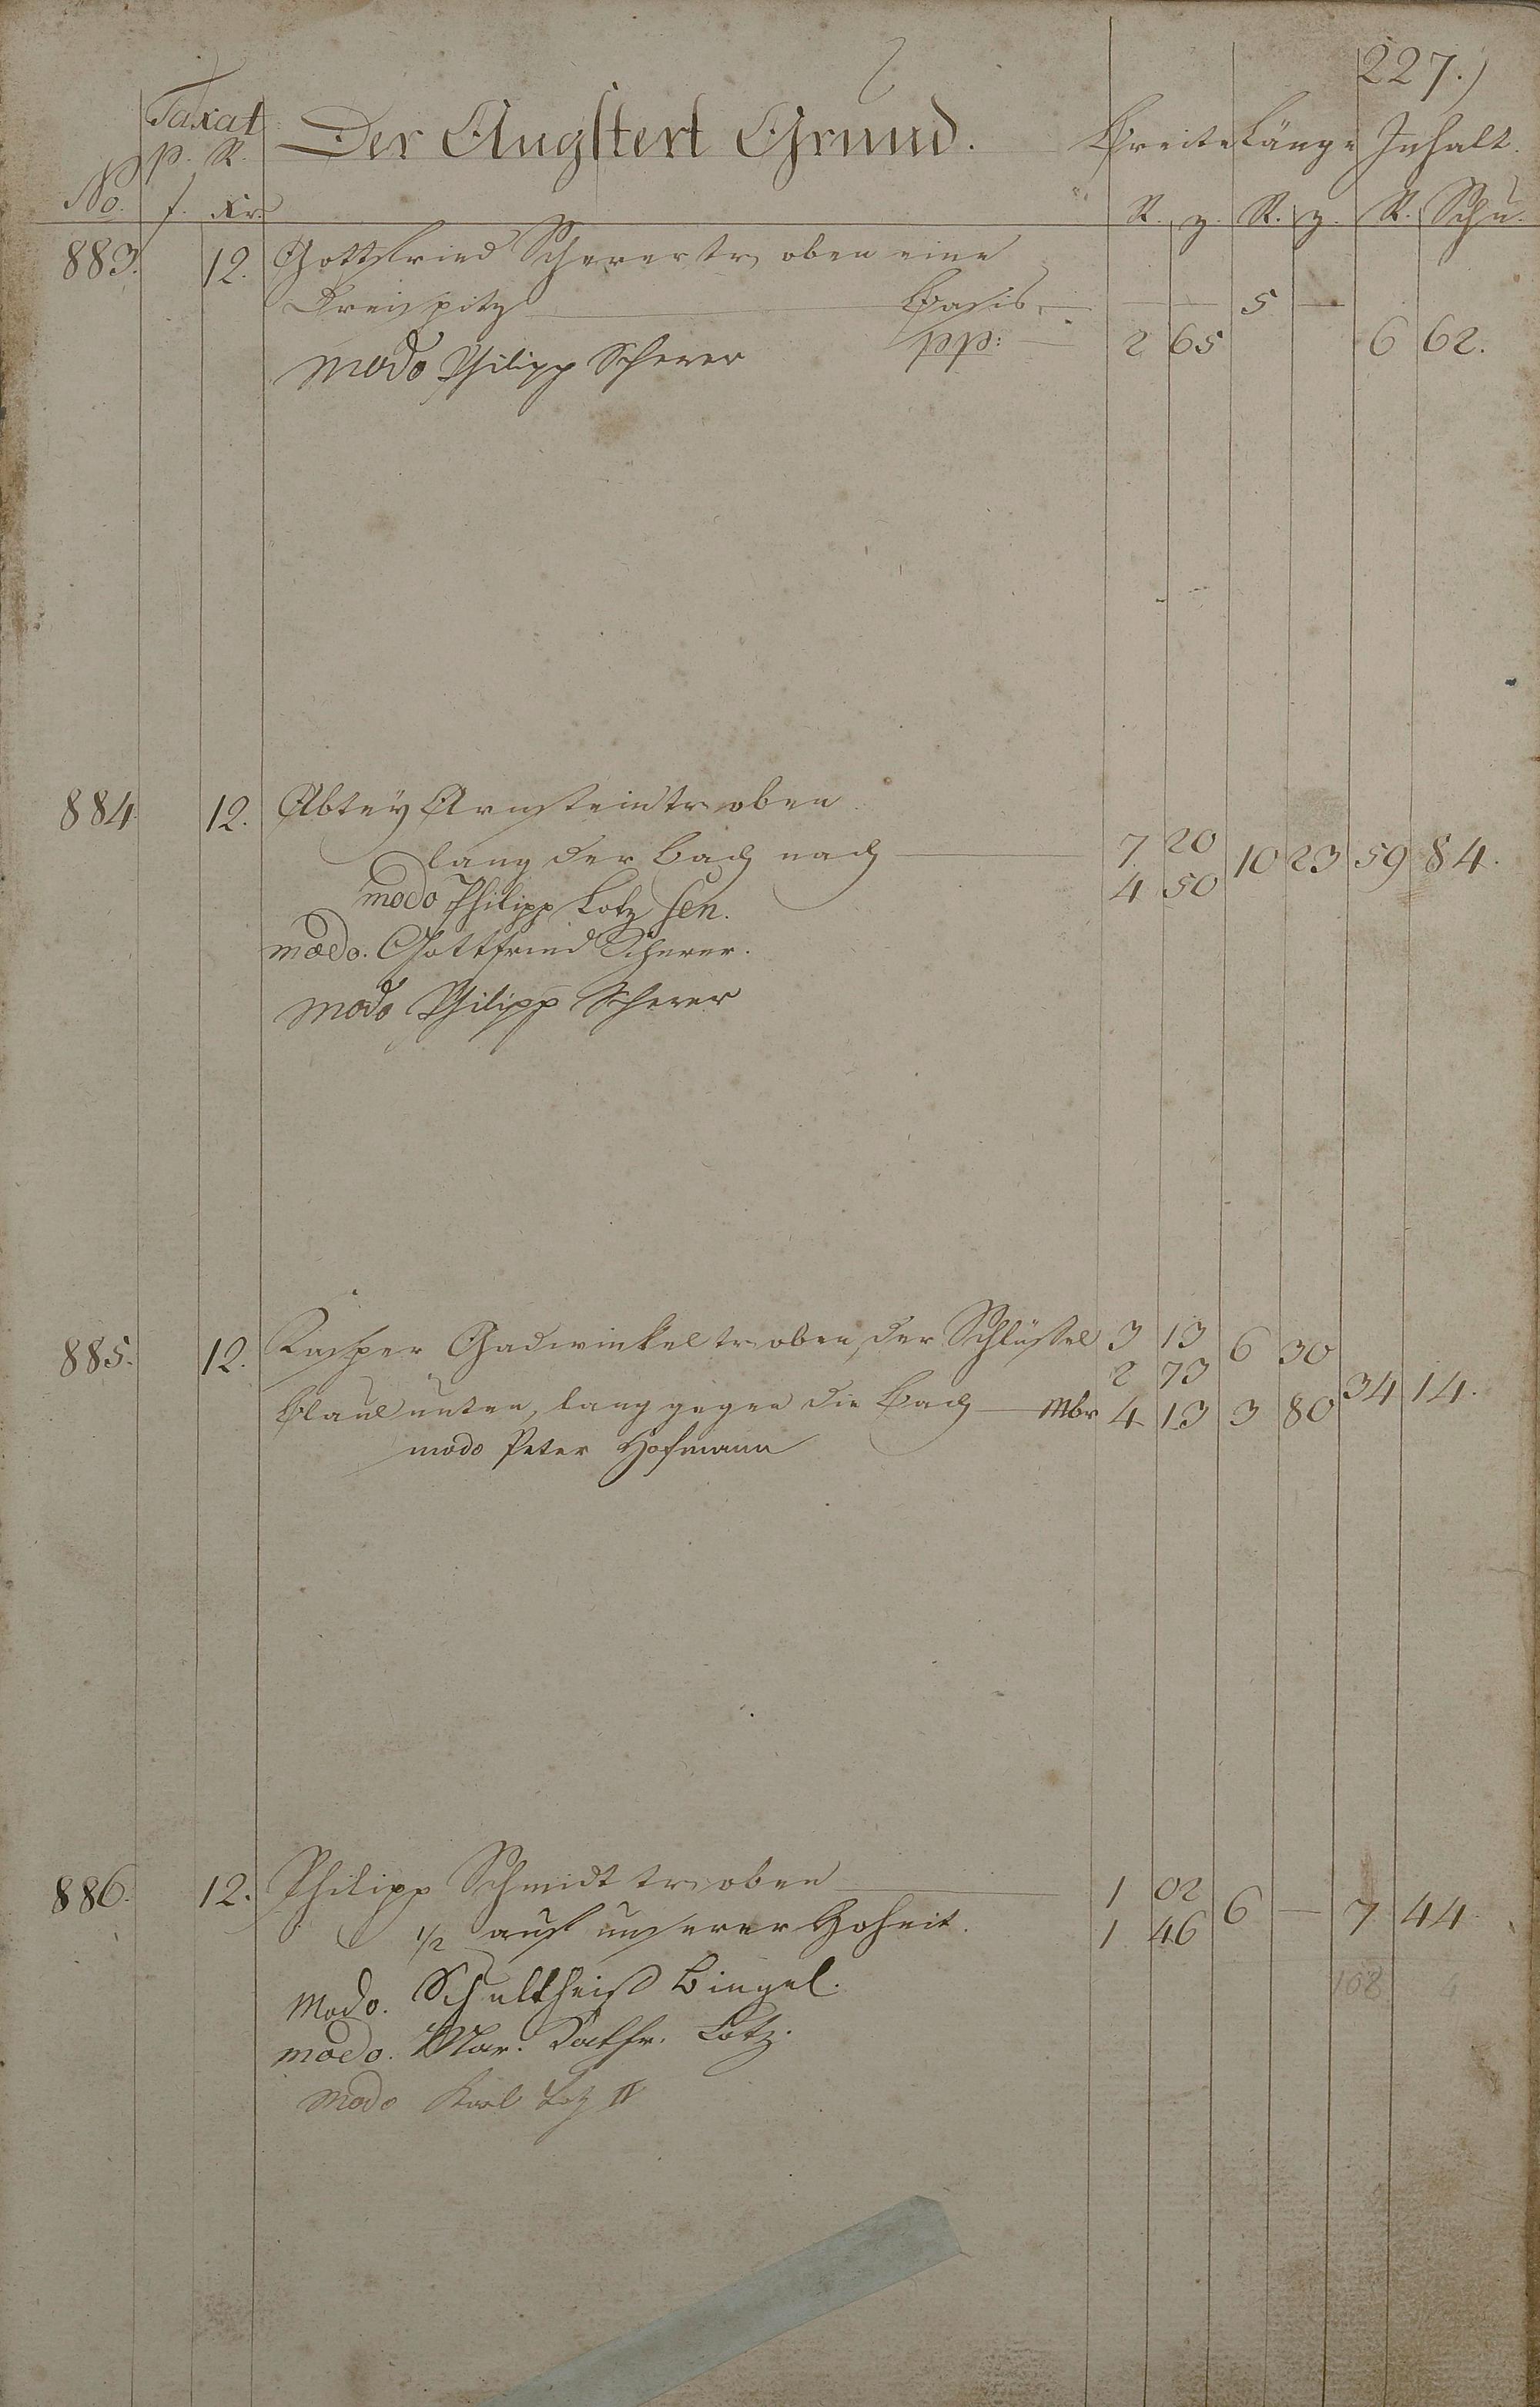 227.)
Taxat
p. R.
Der Augstert Grund.
Breite Länge Inhalt.
No. f. Xr.
R. z. R. z. R. Schu.
883. 12. Gottfried Scherer tr. oben eine
Dreispitz Basis. — — 5 —
pp: — 2 65 6 62.
modo Philipp Scherer
884. 12. Abtey Arnstein tr. oben
lang der Bach nach 7. 20 10 23 59 84.
4 50
modo Philipp Lotz sen.
modo. Gottfried Scherer.
modo Philipp Scherer
885. 12. Kasper Gadwinkel tr. oben, der Schlüssel 3 13 6 30
2 73 34 14.
unten, lang gegen die Bach — Mbr 4 13 3 80
modo Peter Hofmann
886. 12. Philipp Schmidt tr. oben 1 02 6 — 7 44
1/2 auf unserer Hoheit. 1 46
108 4
modo. Schultheiß Bingel.
modo. Mar. Kathr. Lotz.
modo Karl Lotz II